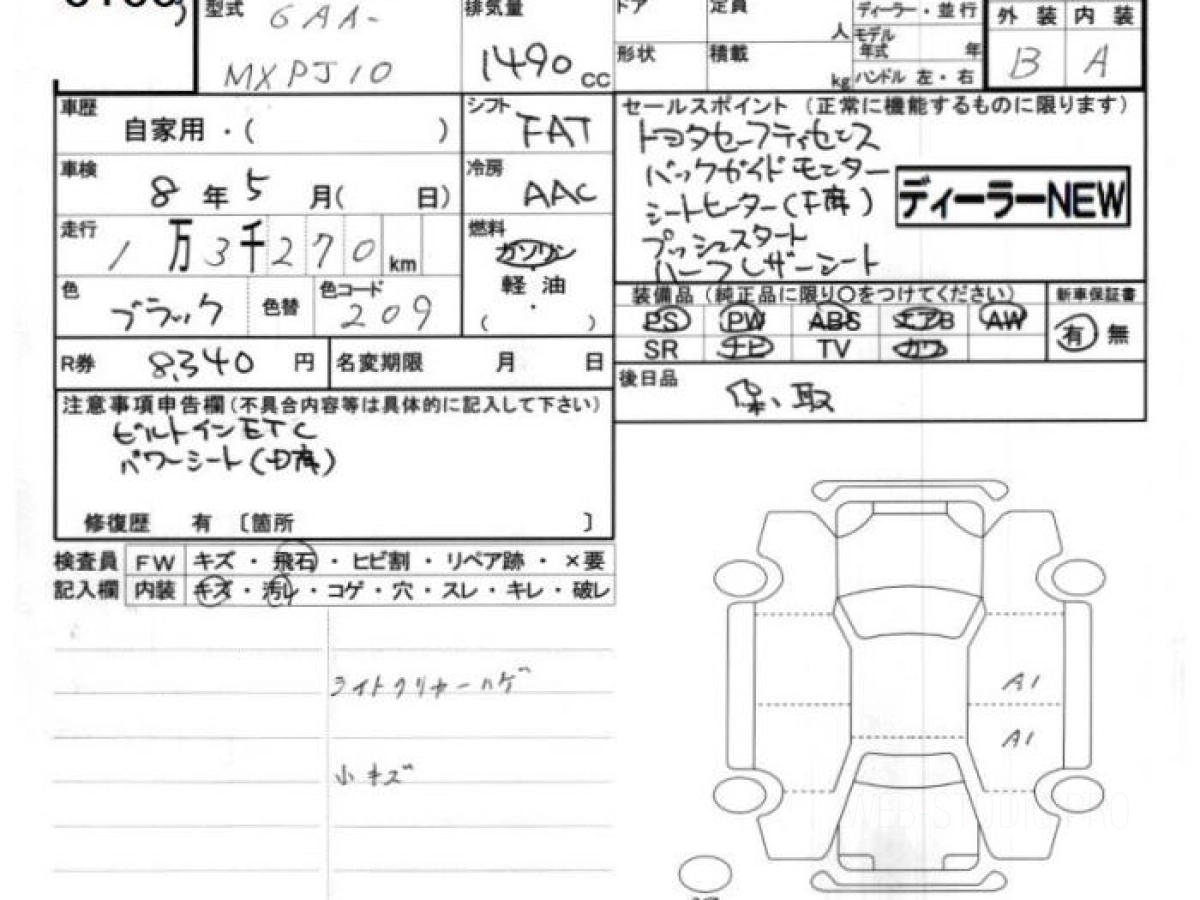 型式 6AA-
MXPJ10
排気量
1490 cc
ドア
定員 人
ディーラー・並行
モデル年式 年
形状
積載 kg
ハンドル 左・右
外装 内装
B A
車歴
自家用・( )
シフト
FAT
車検
8 年 5 月( 日)
冷房
AAC
走行
1 万 3 千 2 7 0 km
燃料
ガソリン
軽・油
( ・ )
色
ブラック
色替
色コード
209
R券 8,340 円
名変期限 月 日
セールスポイント(正常に機能するものに限ります)
トヨタセーフティセンス
バックガイドモニター
シートヒーター(F席)
プッシュスタート
ハーフレザーシート
ディーラーNEW
装備品(純正品に限り○をつけてください)
新車保証書
PS PW ABS エアB AW
有 無
SR ナビ TV カワ
後日品
保、取
注意事項申告欄(不具合内容等は具体的に記入して下さい)
ビルトインETC
パワーシート(D席)
修復歴 有 〔箇所 〕
検査員 FW キズ・飛石・ヒビ割・リペア跡・×要
記入欄 内装 キズ・汚レ・コゲ・穴・スレ・キレ・破レ
ライトクリヤーハゲ
小キズ
A1
A1
WEB-STUDIO.PRO